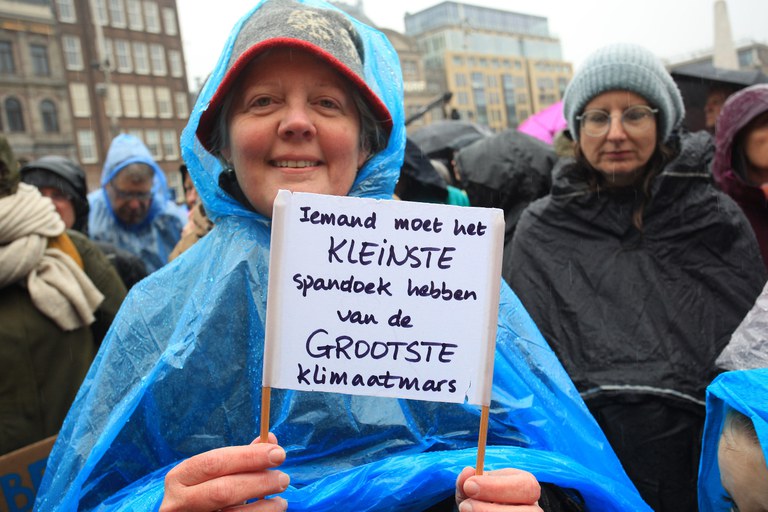 Iemand moet het
KLEINSTE
spandoek hebben
van de
GROOTSTE
klimaatmars